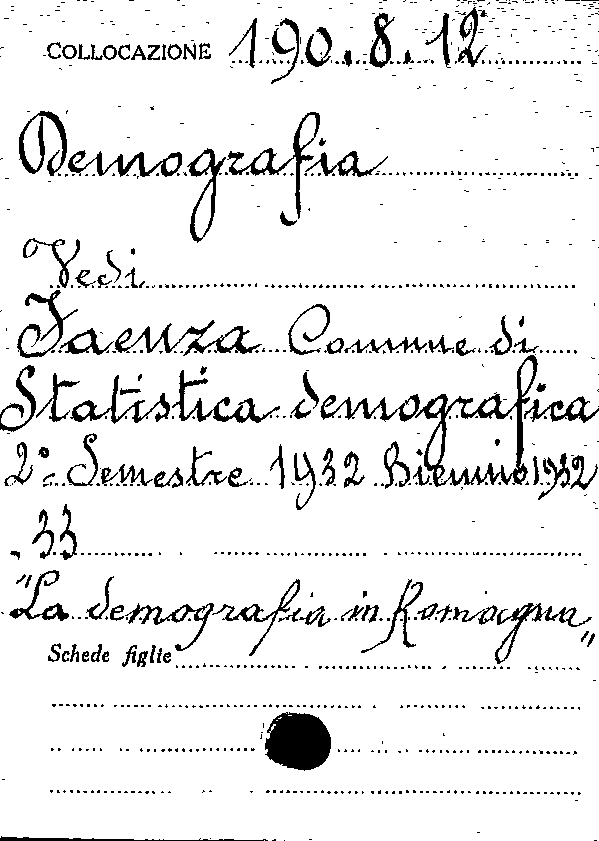 COLLOCAZIONE 190.8.12
Demografia
Vedi
Faenza Comune di
Statistica demografica
2° Semestre 1932 Biennio 1932
.33
"La demografia in Romagna"
Schede figlie